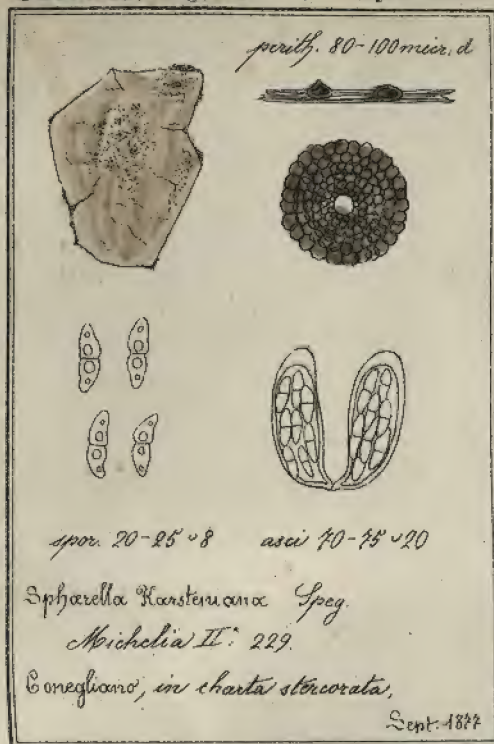 perith. 80-100 micr. d
spor. 20-25 v 8
asci 70-75 v 20
Sphærella Karsteniana Speg.
Michelia II: 229.
Conegliano, in charta stercorata,
Sept. 1877